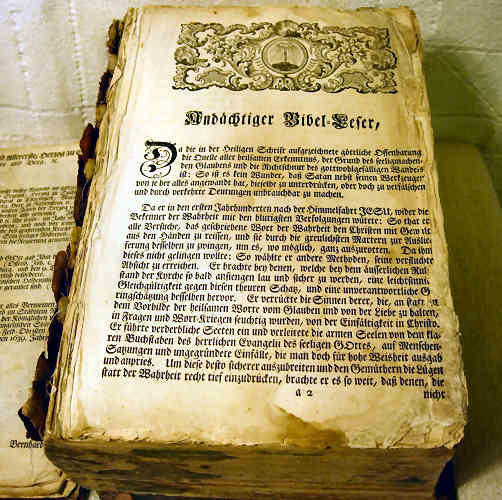 Andächtiger Bibel-Leser,
Da die in der Heiligen Schrift aufgezeichnete göttliche Offenbarung
die Quelle aller heilsamen Erkenntnus, der Grund des seeligmachen-
den Glaubens und die Richtschnur des gottwohlgefälligen Wandels
ist: So ist es kein Wunder, daß Satan nebst seinen Werkzeugen
von je her alles angewandt hat, dieselbe zu unterdrücken, oder doch zu verfälschen
und durch verkehrte Deutungen unbrauchbar zu machen.
Da er in den ersten Jahrhunderten nach der Himmelfahrt JESU, wider die
Bekenner der Wahrheit mit den blutigsten Verfolgungen wütete: So that er
alle Versuche, das geschriebene Wort der Wahrheit den Christen mit Gewalt
aus den Händen zu reissen, und sie durch die greulichsten Martern zur Auslie-
ferung desselben zu zwingen, um es, wo möglich, ganz auszurotten. Da ihm
dieses nicht gelingen wollte: So wählte er andere Methoden, seine verfluchte
Absicht zu erreichen. Er brachte bey denen, welche bey dem äußerlichen Ruh-
stand der Kirche so bald anfiengen lau und sicher zu werden, eine leichtsinnige
Gleichgültigkeit gegen diesen theuren Schatz, und eine unverantwortliche Ge-
ringschätzung desselben hervor. Er verrückte die Sinnen derer, die, an statt
dem Vorbilde der heilsamen Worte vom Glauben und von der Liebe zu halten,
in Fragen und Wort-Kriegen seuchtig wurden, von der Einfältigkeit in Christo.
Er führte verderbliche Secten ein und verleitete die armen Seelen von dem kla-
ren Buchstaben des herrlichen Evangelii des seeligen GOttes, auf Menschen-
Satzungen und ungegründete Einfälle, die man doch für hohe Weisheit ausgab
und anpries. Um diese desto sicherer auszubreiten und den Gemüthern die Lügen
statt der Wahrheit recht tief einzudrücken, brachte er es so weit, daß denen, die
a 2 nicht
Bernhard